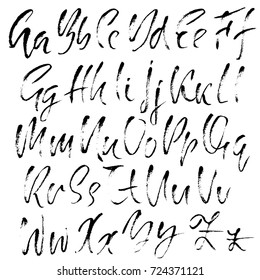 Aa Bb Cc Dd Ee Ff
Gg Hh Ii Jj Kk Ll
Mm Nn Oo Pp Qq
Rr Ss Tt Uu Vv
Ww Xx Yy Zz
shutterstock.com · 724371121